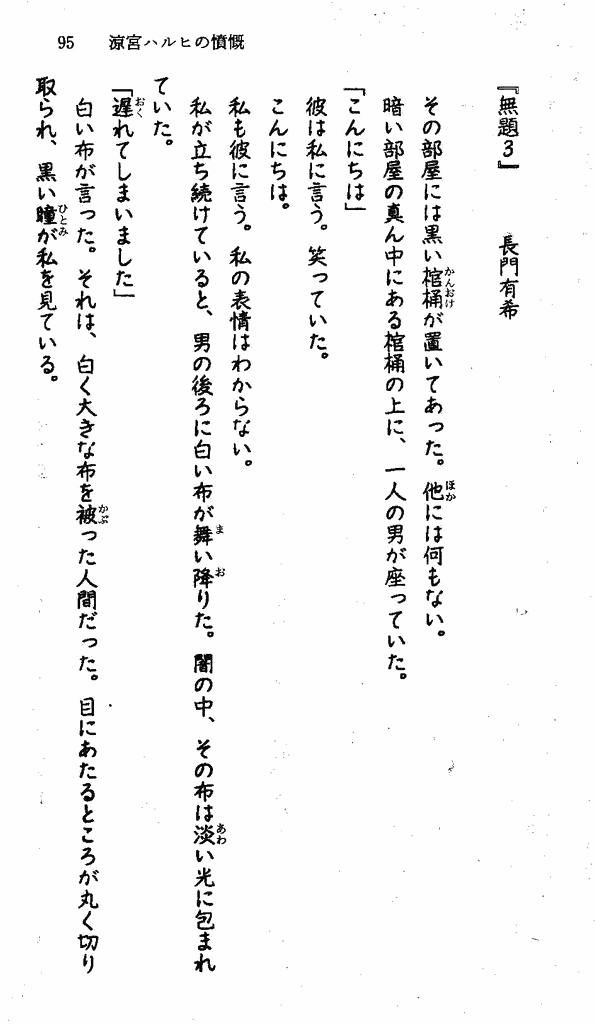 95 涼宮ハルヒの憤慨
『無題3』 長門有希
その部屋には黒い棺桶が置いてあった。他には何もない。
暗い部屋の真ん中にある棺桶の上に、一人の男が座っていた。
「こんにちは」
彼は私に言う。笑っていた。
こんにちは。
私も彼に言う。私の表情はわからない。
私が立ち続けていると、男の後ろに白い布が舞い降りた。闇の中、その布は淡い光に包まれ
ていた。
「遅れてしまいました」
白い布が言った。それは、白く大きな布を被った人間だった。目にあたるところが丸く切り
取られ、黒い瞳が私を見ている。